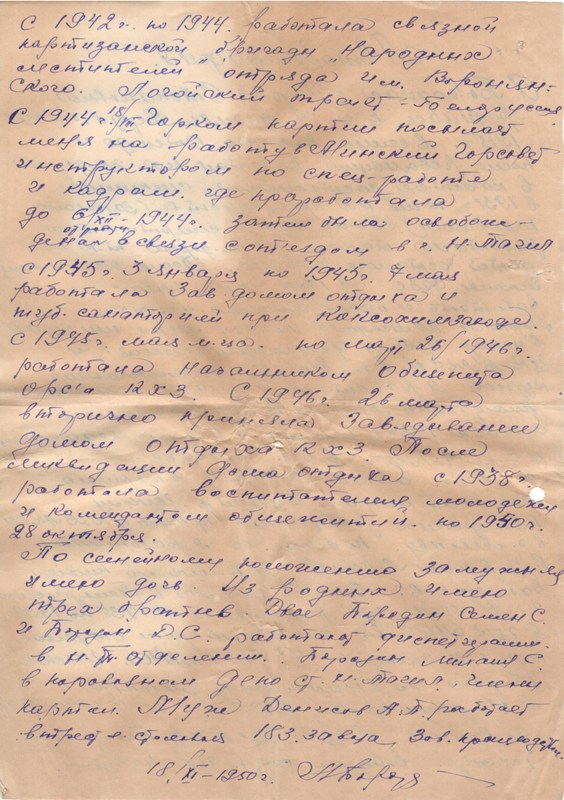 С 1942г. по 1944. работала связной
партизанской бригады „Народных
мстителей" отряда им. Воронян-
ского. Логойский тракт-Белоруссия
С 1944г. 18/VII Горком партии посылает
меня на работу в Минский Горсовет
Инструктором по спец-работе
и кадрам, где проработала
до 6/XII-1944г. затем была освобож-
дена в связи с отъездом в г. Н.Тагил
с 1945г. 3 января по 1945г. 7 мая
работала Зав. домом отдыха и
туб. санаторией при Коксохимзаводе.
С 1945г. мая м-ца. по март 26/1946г.
работала Начальником Общепита
Орс'а КХЗ. С 1946г. 26 марта
вторично приняла Заведывание
домом отдыха КХЗ. После
ликвидации Дома отдыха с 1938г.
работала воспитателем молодежи
и комендантом общежитий. по 1950г.
28 октября.
По семейному положению замужняя
имею дочь Из родных имею
трех братьев. Двое Бородин Семен С.
и Бородин Д.С. работают диспетчерами
в Н-Т отделении. Бородин Михаил С.
в паровозном депо ст. Н.Тагил. члены
партии. Муж Денисов А.П. работает
в тресте столовых 183. завода Зав. производством.
18/XI-1950г.